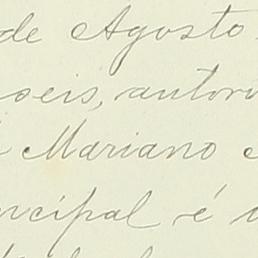 de Agosto
seis, autori
Mariano
ncipal é